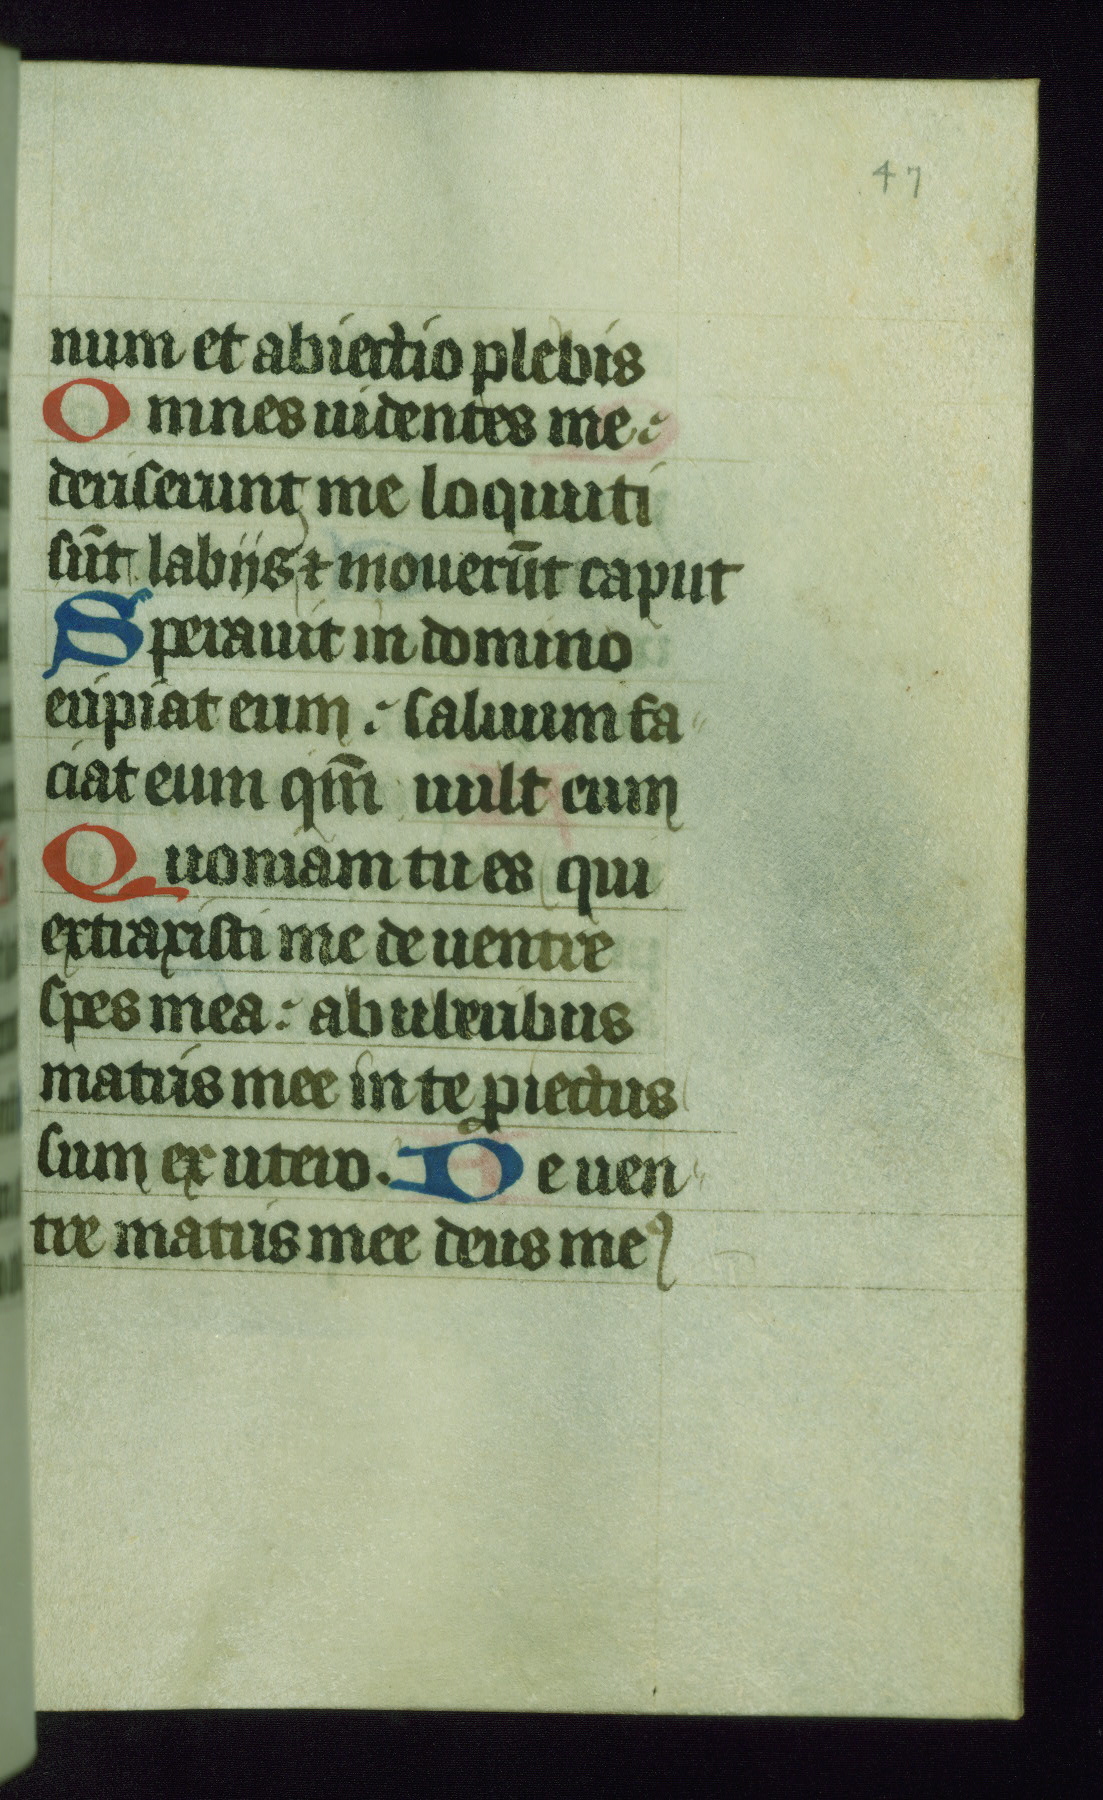 47
num et abiectio plebis
Omnes uidentes me:
deriserunt me loquuti
sūt labijs ⁊ mouerūt caput
Sperauit in domino
eripiat eum : saluum fa
ciat eum qm̄ uult eum
Quoniam tu es qui
extraxisti me de uentre
spes mea : ab uberibus
matris mee in te ꝓiectus
sum ex utero. De uen
tre matris mee deus meꝰ